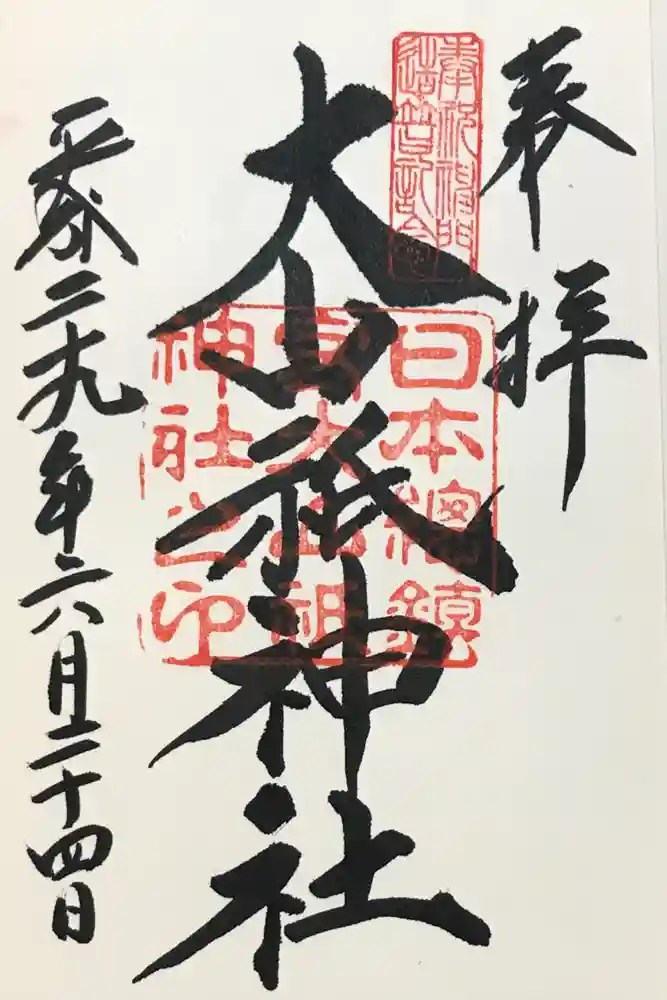 奉拝
日本總鎮
守大山祇
神社之印
大山祇神社
平成二十九年六月二十四日